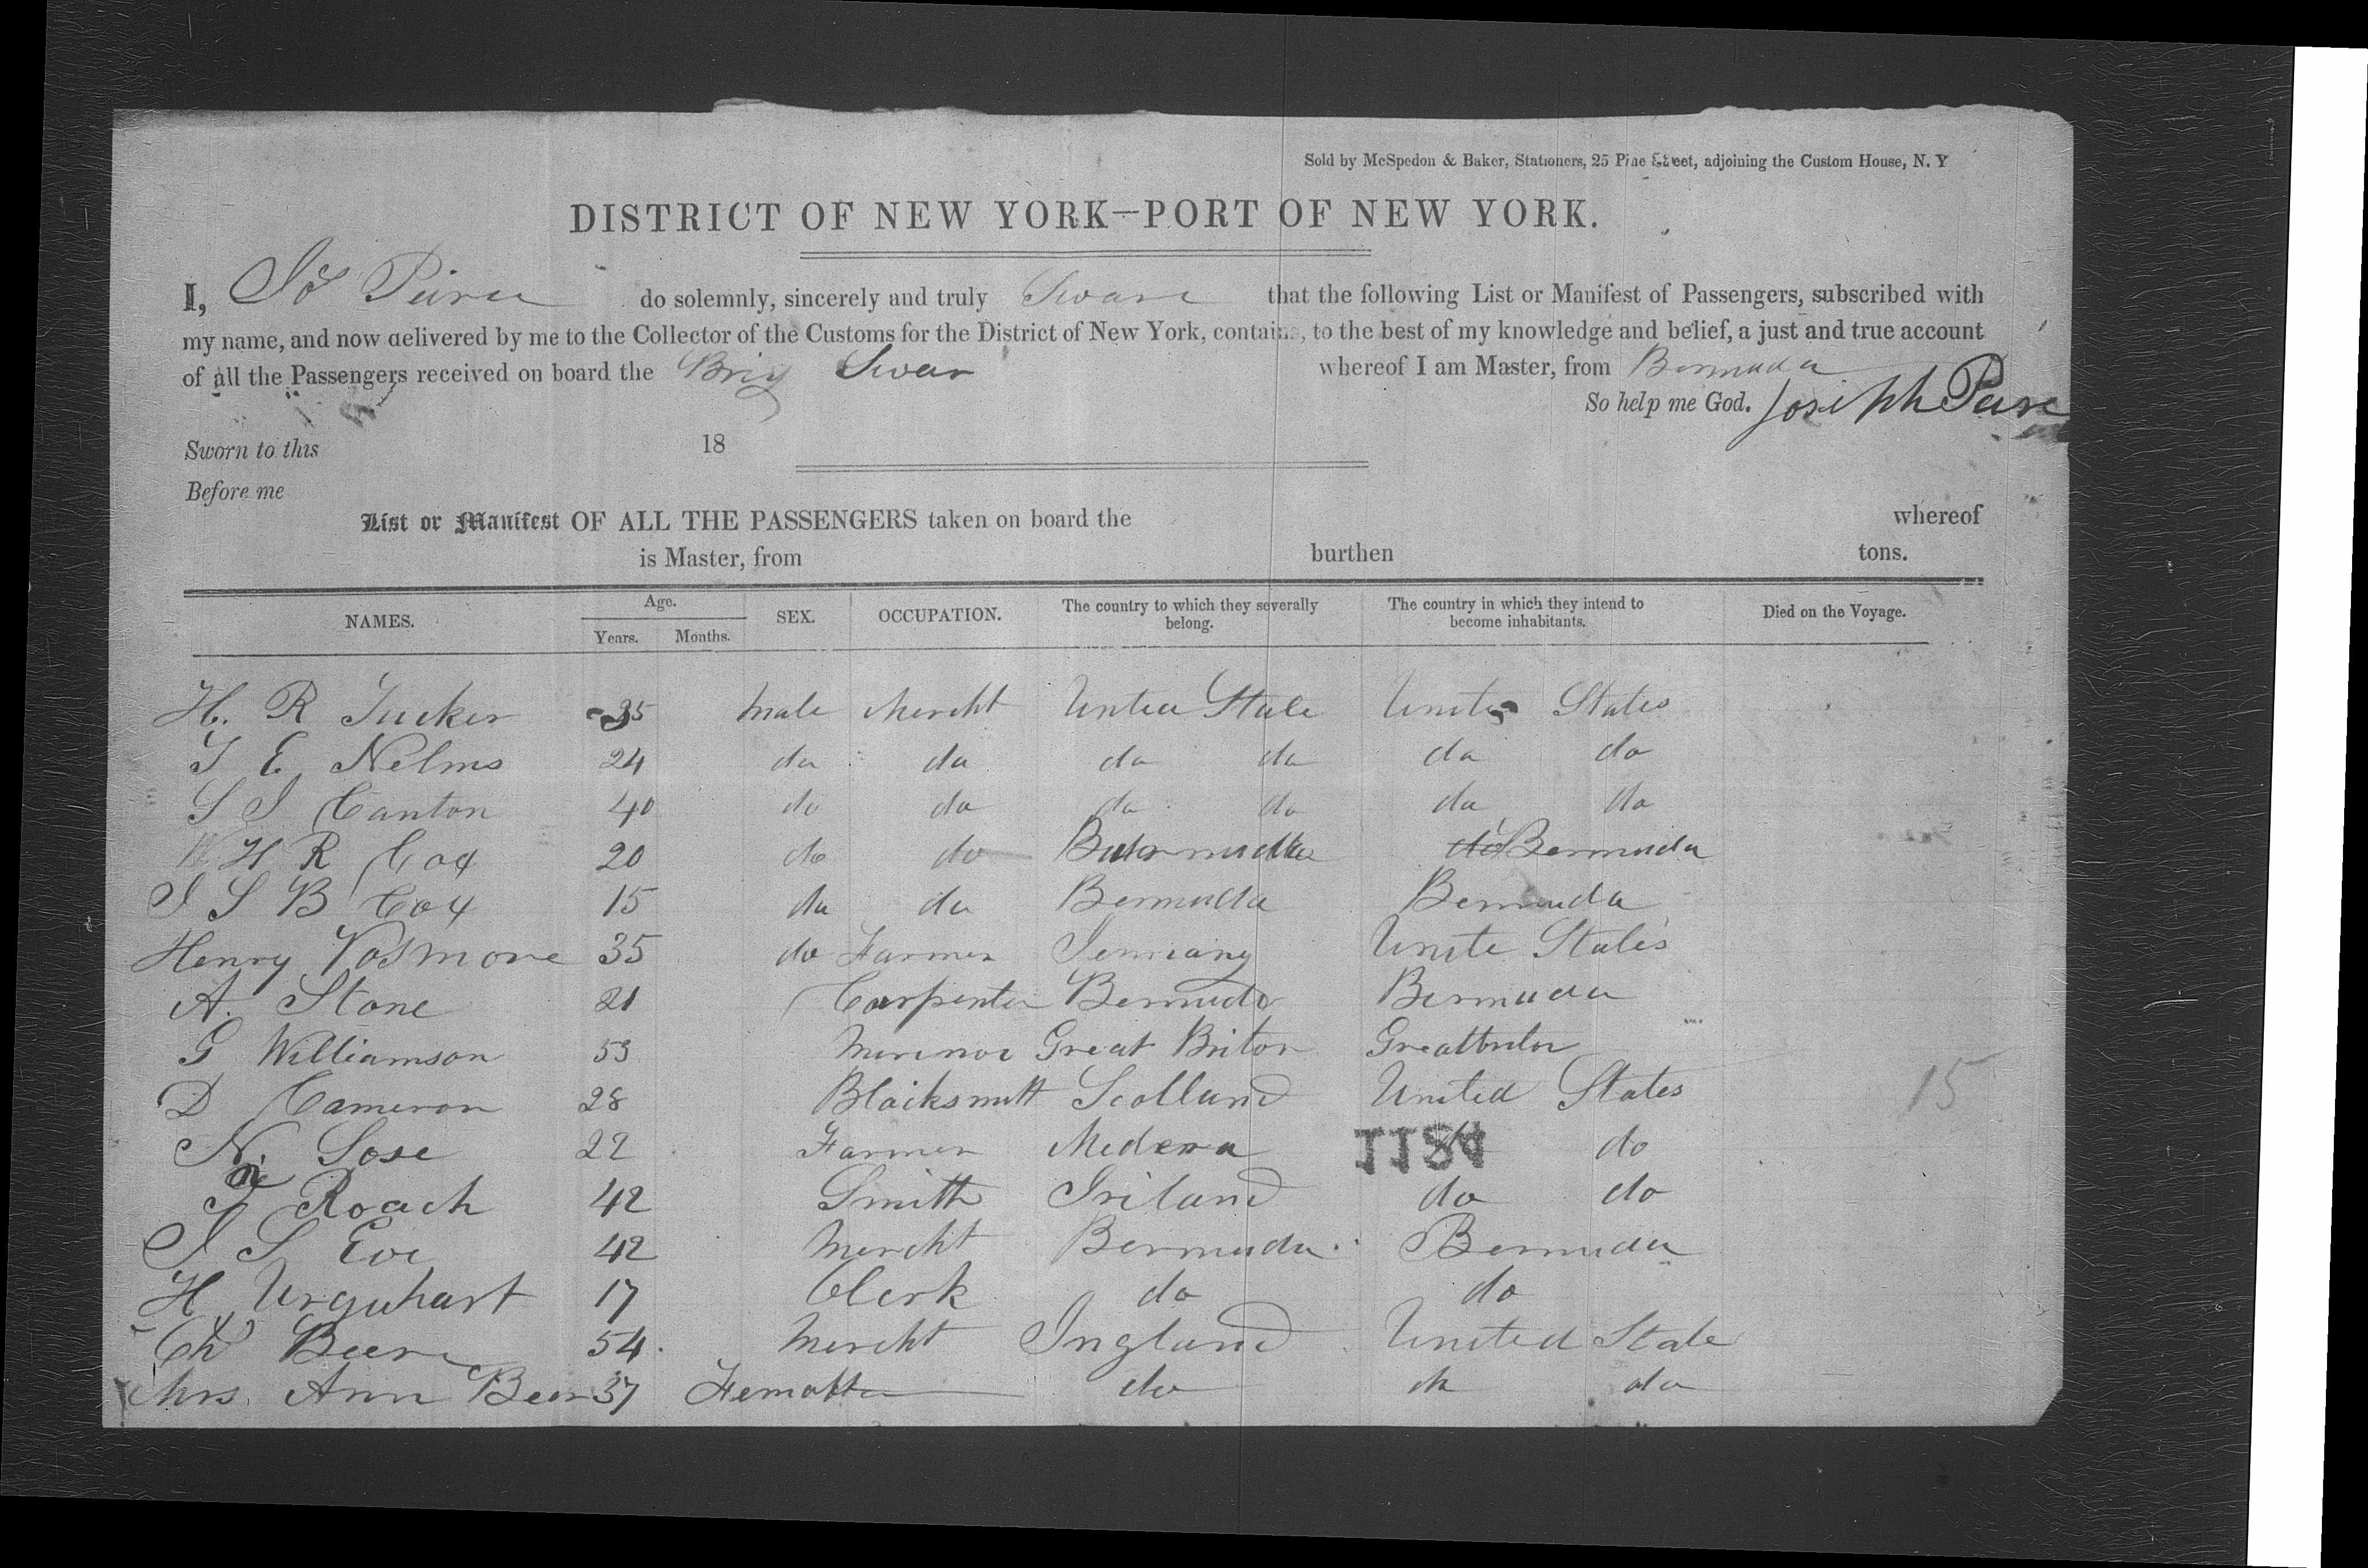 Sold by McSpedon & Baker, Stationers, 25 Pine Street, adjoining the Custom House, N. Y
DISTRICT OF NEW YORK—PORT OF NEW YORK.
I, Jos Peirce do solemnly, sincerely and truly Sware that the following List or Manifest of Passengers, subscribed with
my name, and now delivered by me to the Collector of the Customs for the District of New York, contains, to the best of my knowledge and belief, a just and true account
of all the Passengers received on board the Brig Swan whereof I am Master, from Bermuda
So help me God. Joseph
Sworn to this 18
Before me
List or Manifest OF ALL THE PASSENGERS taken on board the whereof
is Master, from burthen tons.
NAMES. Age. Years. Months. SEX. OCCUPATION. The country to which they severally belong. The country in which they intend to become inhabitants. Died on the Voyage.
H. R Tucker 35 Male Mercht United State United States
T E Nelms 24 do do do do do do
S J Canton 40 do do do do do do
W H R Cox 20 do do Bermuda do Bermuda
J S B Cox 15 do do Bermuda Bermuda
Henry Vosmore 35 do Farmer Germany Unite States
A. Stone 21 Carpenter Bermuda Bermuda
G Williamson 53 Great Briton Greatbriton
D Cameron 28 Blacksmitt Scotland United States 15
N Sose 22 Farmer Medera 1184 do
Roach 42 Smith Iriland do do
J S Eve 42 Mercht Bermuda Bermuda
H Urquhart 17 Clerk do do
Ch Beer 54 Mercht Ingland United State
Mrs. Ann Beer 37 Female do do do